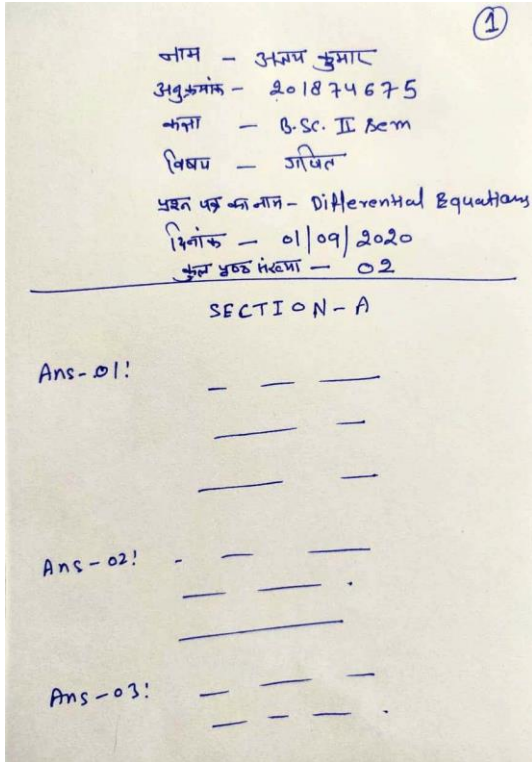 1
नाम - अजय कुमार
अनुक्रमांक - 201874675
कक्षा - B.Sc. II Sem
विषय - गणित
प्रश्न पत्र का नाम - Differential Equations
दिनांक - 01/09/2020
कुल पृष्ठ संख्या - 02
SECTION-A
Ans-01:
Ans-02:
Ans-03: